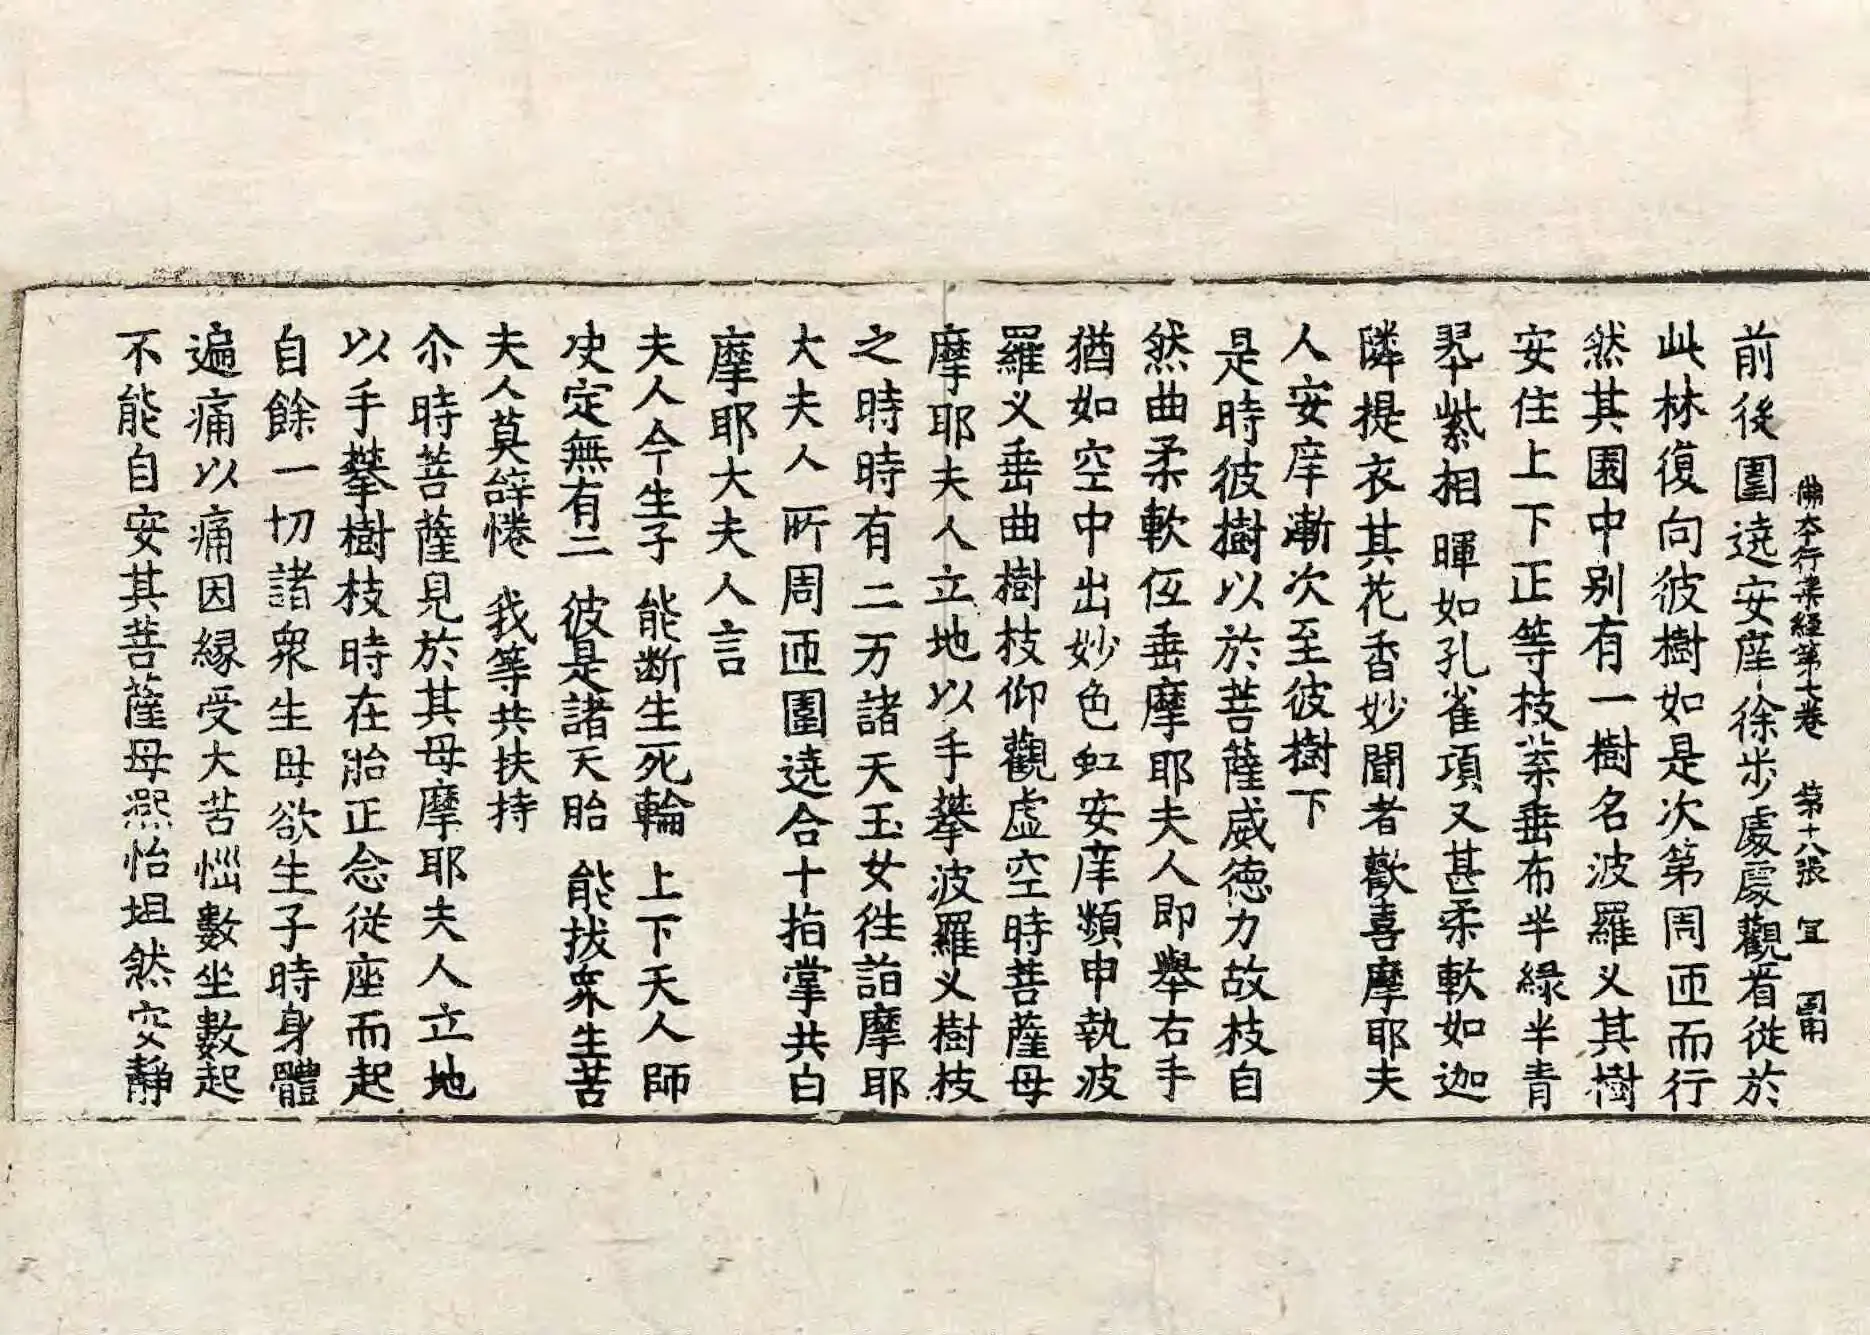 佛本行集經第七卷 第十八張 宜
前後圍遶安庠徐步處處觀看從於
此林復向彼樹如是次第周匝而行
然其園中別有一樹名波羅叉其樹
安住上下正等枝葉垂布半綠半青
翠紫相暉如孔雀項又甚柔軟如迦
隣提衣其花香妙聞者歡喜摩耶夫
人安庠漸次至彼樹下
是時彼樹以於菩薩威德力故枝自
然曲柔軟低垂摩耶夫人即舉右手
猶如空中出妙色虹安庠頻申執波
羅叉垂曲樹枝仰觀虛空時菩薩母
摩耶夫人立地以手攀波羅叉樹枝
之時時有二万諸天玉女往詣摩耶
大夫人所周匝圍遶合十指掌共白
摩耶大夫人言
夫人今生子 能断生死輪 上下天人師
决定無有二 彼是諸天胎 能拔眾生苦
夫人莫辞惓 我等共扶持
尒時菩薩見於其母摩耶夫人立地
以手攀樹枝時在胎正念從座而起
自餘一切諸眾生母欲生子時身體
遍痛以痛因緣受大苦惱數坐數起
不能自安其菩薩母熙怡坦然安靜